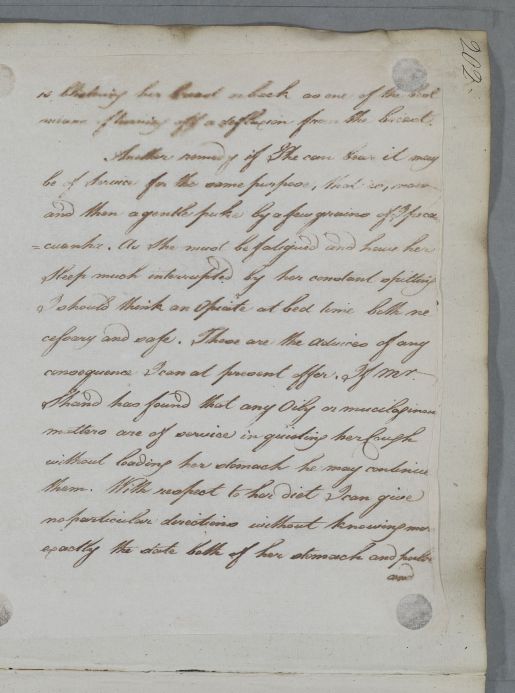 202.
is blistering her breast or back as one of the best
means of turning off a defluxion from the breast.
Another remedy if She can bear it may
be of service for the same purpose, that is, now
and then a gentle puke by a few grains of Ipeca
=cuanha. As She must be fatigued and have her
Sleep much interrupted by her constant spitting
I should think an Opiate at bed time both ne
cessary and safe. These are the advices of any
consequence I can at present offer. If Mr.
Shand has found that any Oily or mucilaginous
matters are of service in quieting her Cough
without loading her stomach he may continue
them. With respect to her diet I can give
no particular directions without knowing more
exactly the state both of her stomach and pulse
and